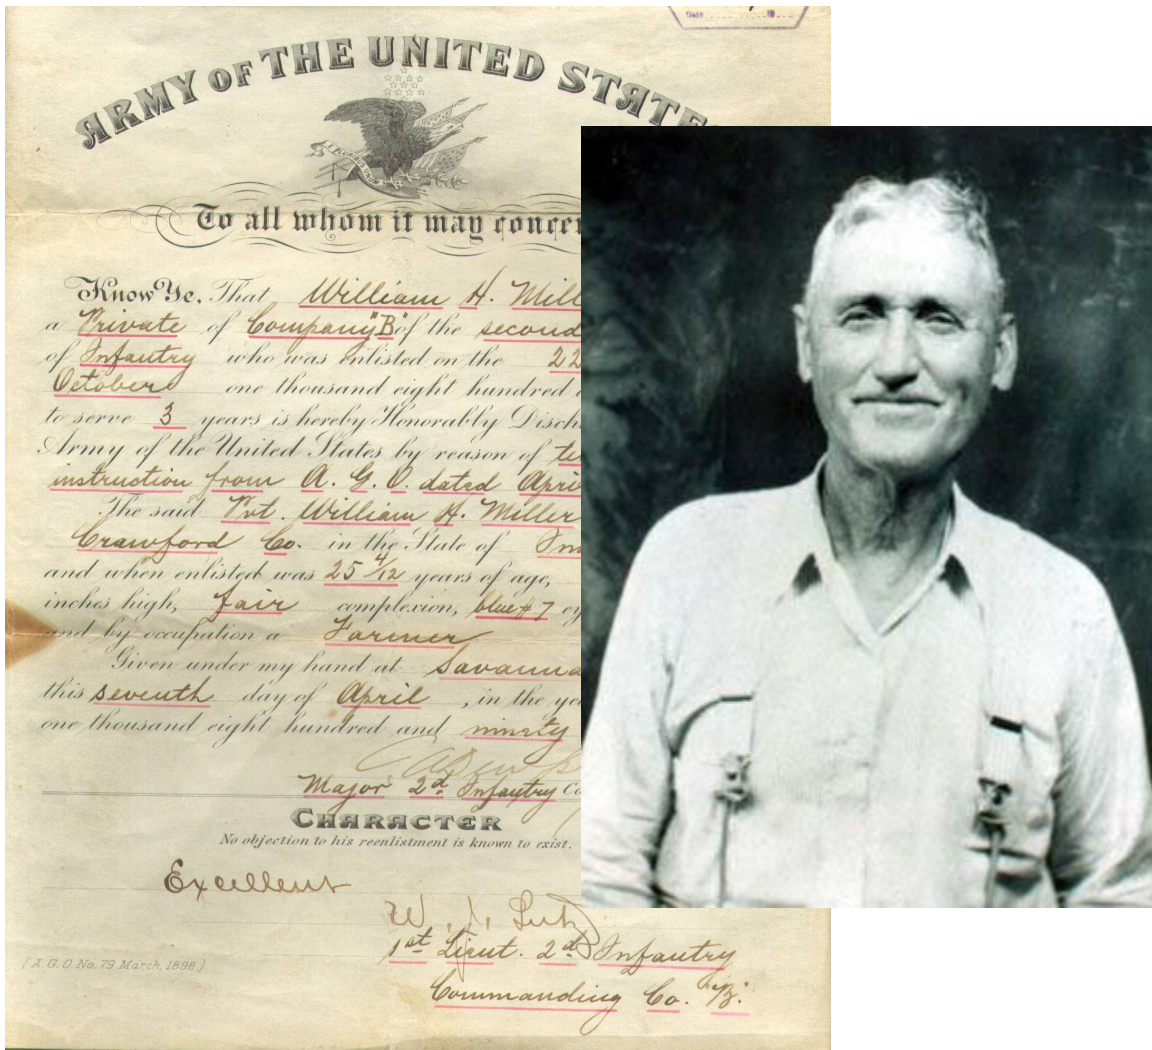 DATE 19
ARMY OF THE UNITED STATE
E PLURIBUS UNUM
To all whom it may concer
Know Ye, That William H. Mill
a Private of Company "B" of the second
of Infantry who was enlisted on the 22
October one thousand eight hundred
to serve 3 years is hereby Honorably Disch
Army of the United States by reason of te
instruction from A. G. O. dated Apri
The said Pvt. William H. Miller
Crawford Co. in the State of In
and when enlisted was 25 4/12 years of age,
inches high, fair complexion, blue # 7 ey
and by occupation a Farmer
Given under my hand at Savanna
this seventh day of April , in the ye
one thousand eight hundred and ninety
Major 2d Infantry Co
CHARACTER
No objection to his reenlistment is known to exist.
Excellent
W. J.
1st Lieut. 2d Infantry
Commanding Co. "B".
(A. G. O. No. 79 March, 1898.)